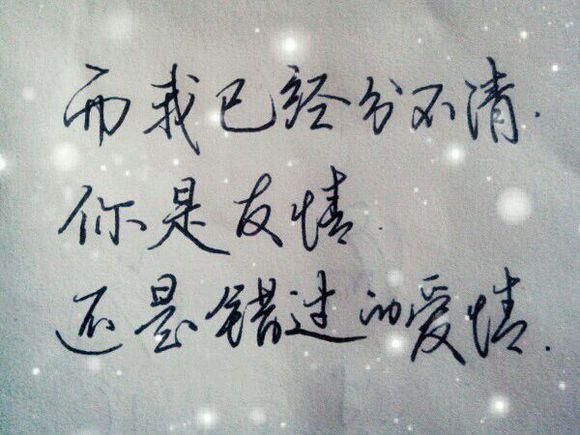 而我已经分不清.
你是友情.
还是错过的爱情.